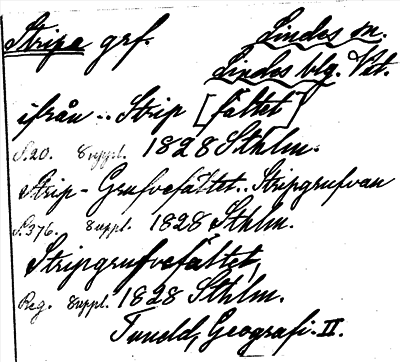 Stripa grf. Lindes sn.
Lindes blg. Vstt.
ifrån .. Strip [fältet]
S. 20. Suppl. 1828 Sthlm.
Strip-Grufvefältet .. Stripgrufvan
S. 376. Suppl. 1828 Sthlm.
Stripgrufvefältet,
Reg. Suppl. 1828 Sthlm.
Tuneld, Geografi. II.